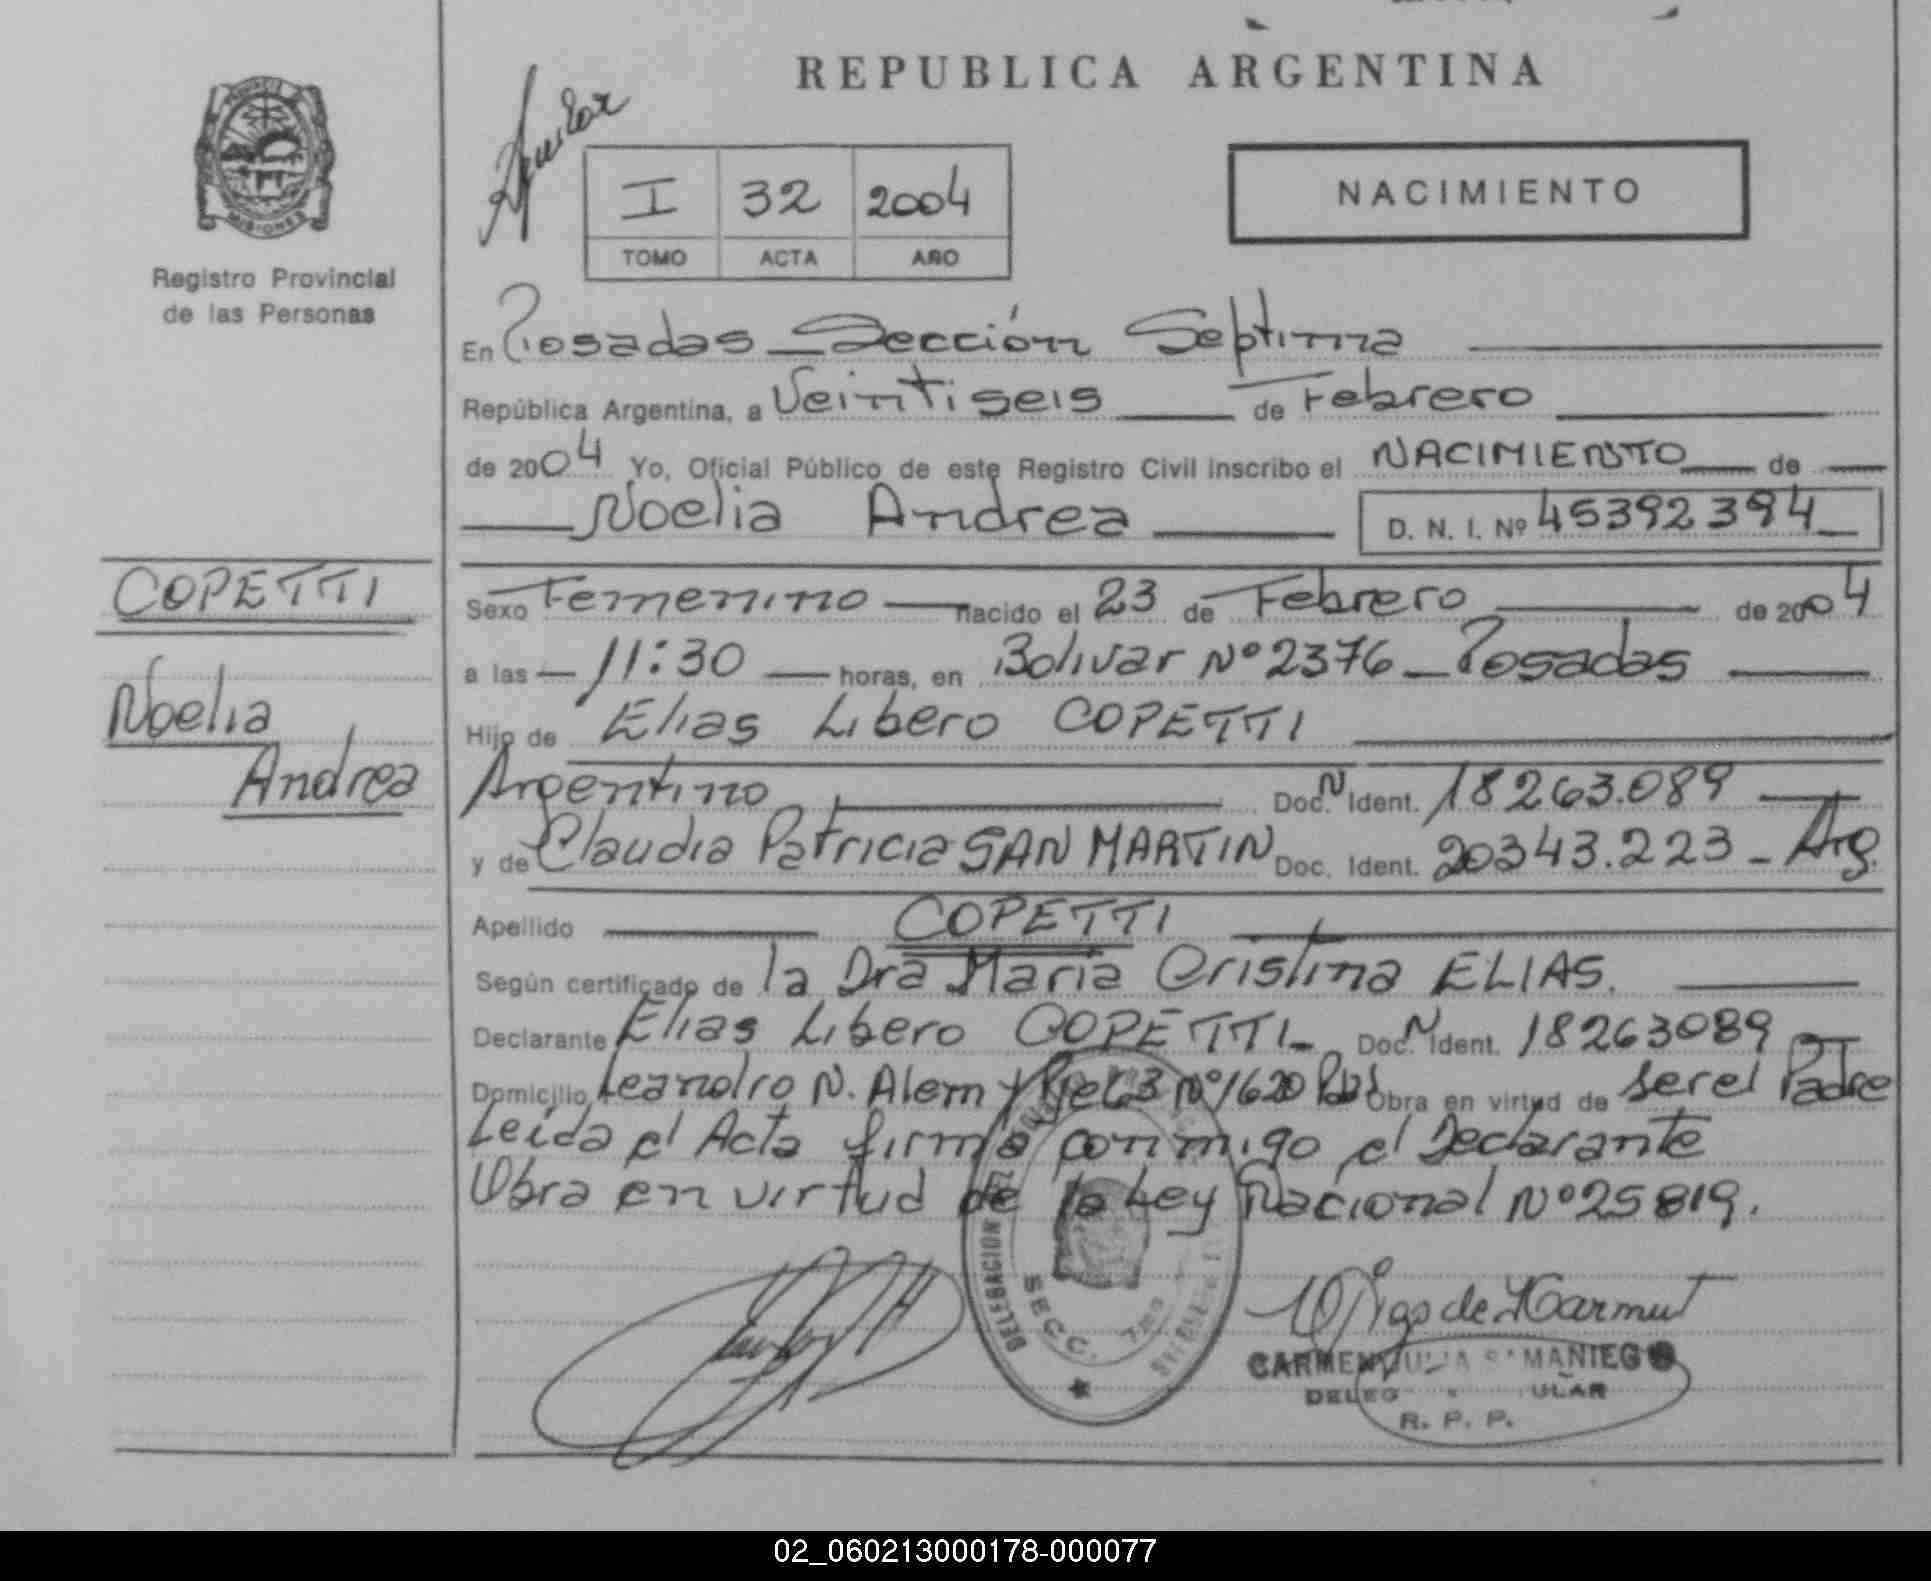 REPUBLICA ARGENTINA
MISIONES
Registro Provincial
de las Personas
Aguilar
I 32 2004
TOMO ACTA AÑO
NACIMIENTO
En Posadas Sección Septima
República Argentina, a Veintiseis de Febrero
de 2004 Yo, Oficial Público de este Registro Civil inscribo el NACIMIENTO de
Noelia Andrea D. N. I. Nº 45392394
COPETTI
Noelia
Andrea
Sexo Femenino nacido el 23 de Febrero de 2004
a las 11:30 horas, en Bolivar Nº 2376 Posadas
Hijo de Elias Libero COPETTI
Argentino Doc. N Ident. 18263.089
y de Claudia Patricia SAN MARTIN Doc. Ident. 20343.223 - Arg.
Apellido COPETTI
Según certificado de la Dra Maria Cristina ELIAS.
Declarante Elias Libero COPETTI Doc. N Ident. 18263089
Domicilio Leandro N. Alem y Pje 63 Nº 1620 Pdas Obra en virtud de ser el Padre
Leída el Acta firma conmigo el Declarante
Obra en virtud de la Ley Nacional Nº 25819.
DELEGACION
SECC. 7ma
CARMEN JULIA SAMANIEGO
DELEG ULAR
R. P. P.
02_060213000178-000077